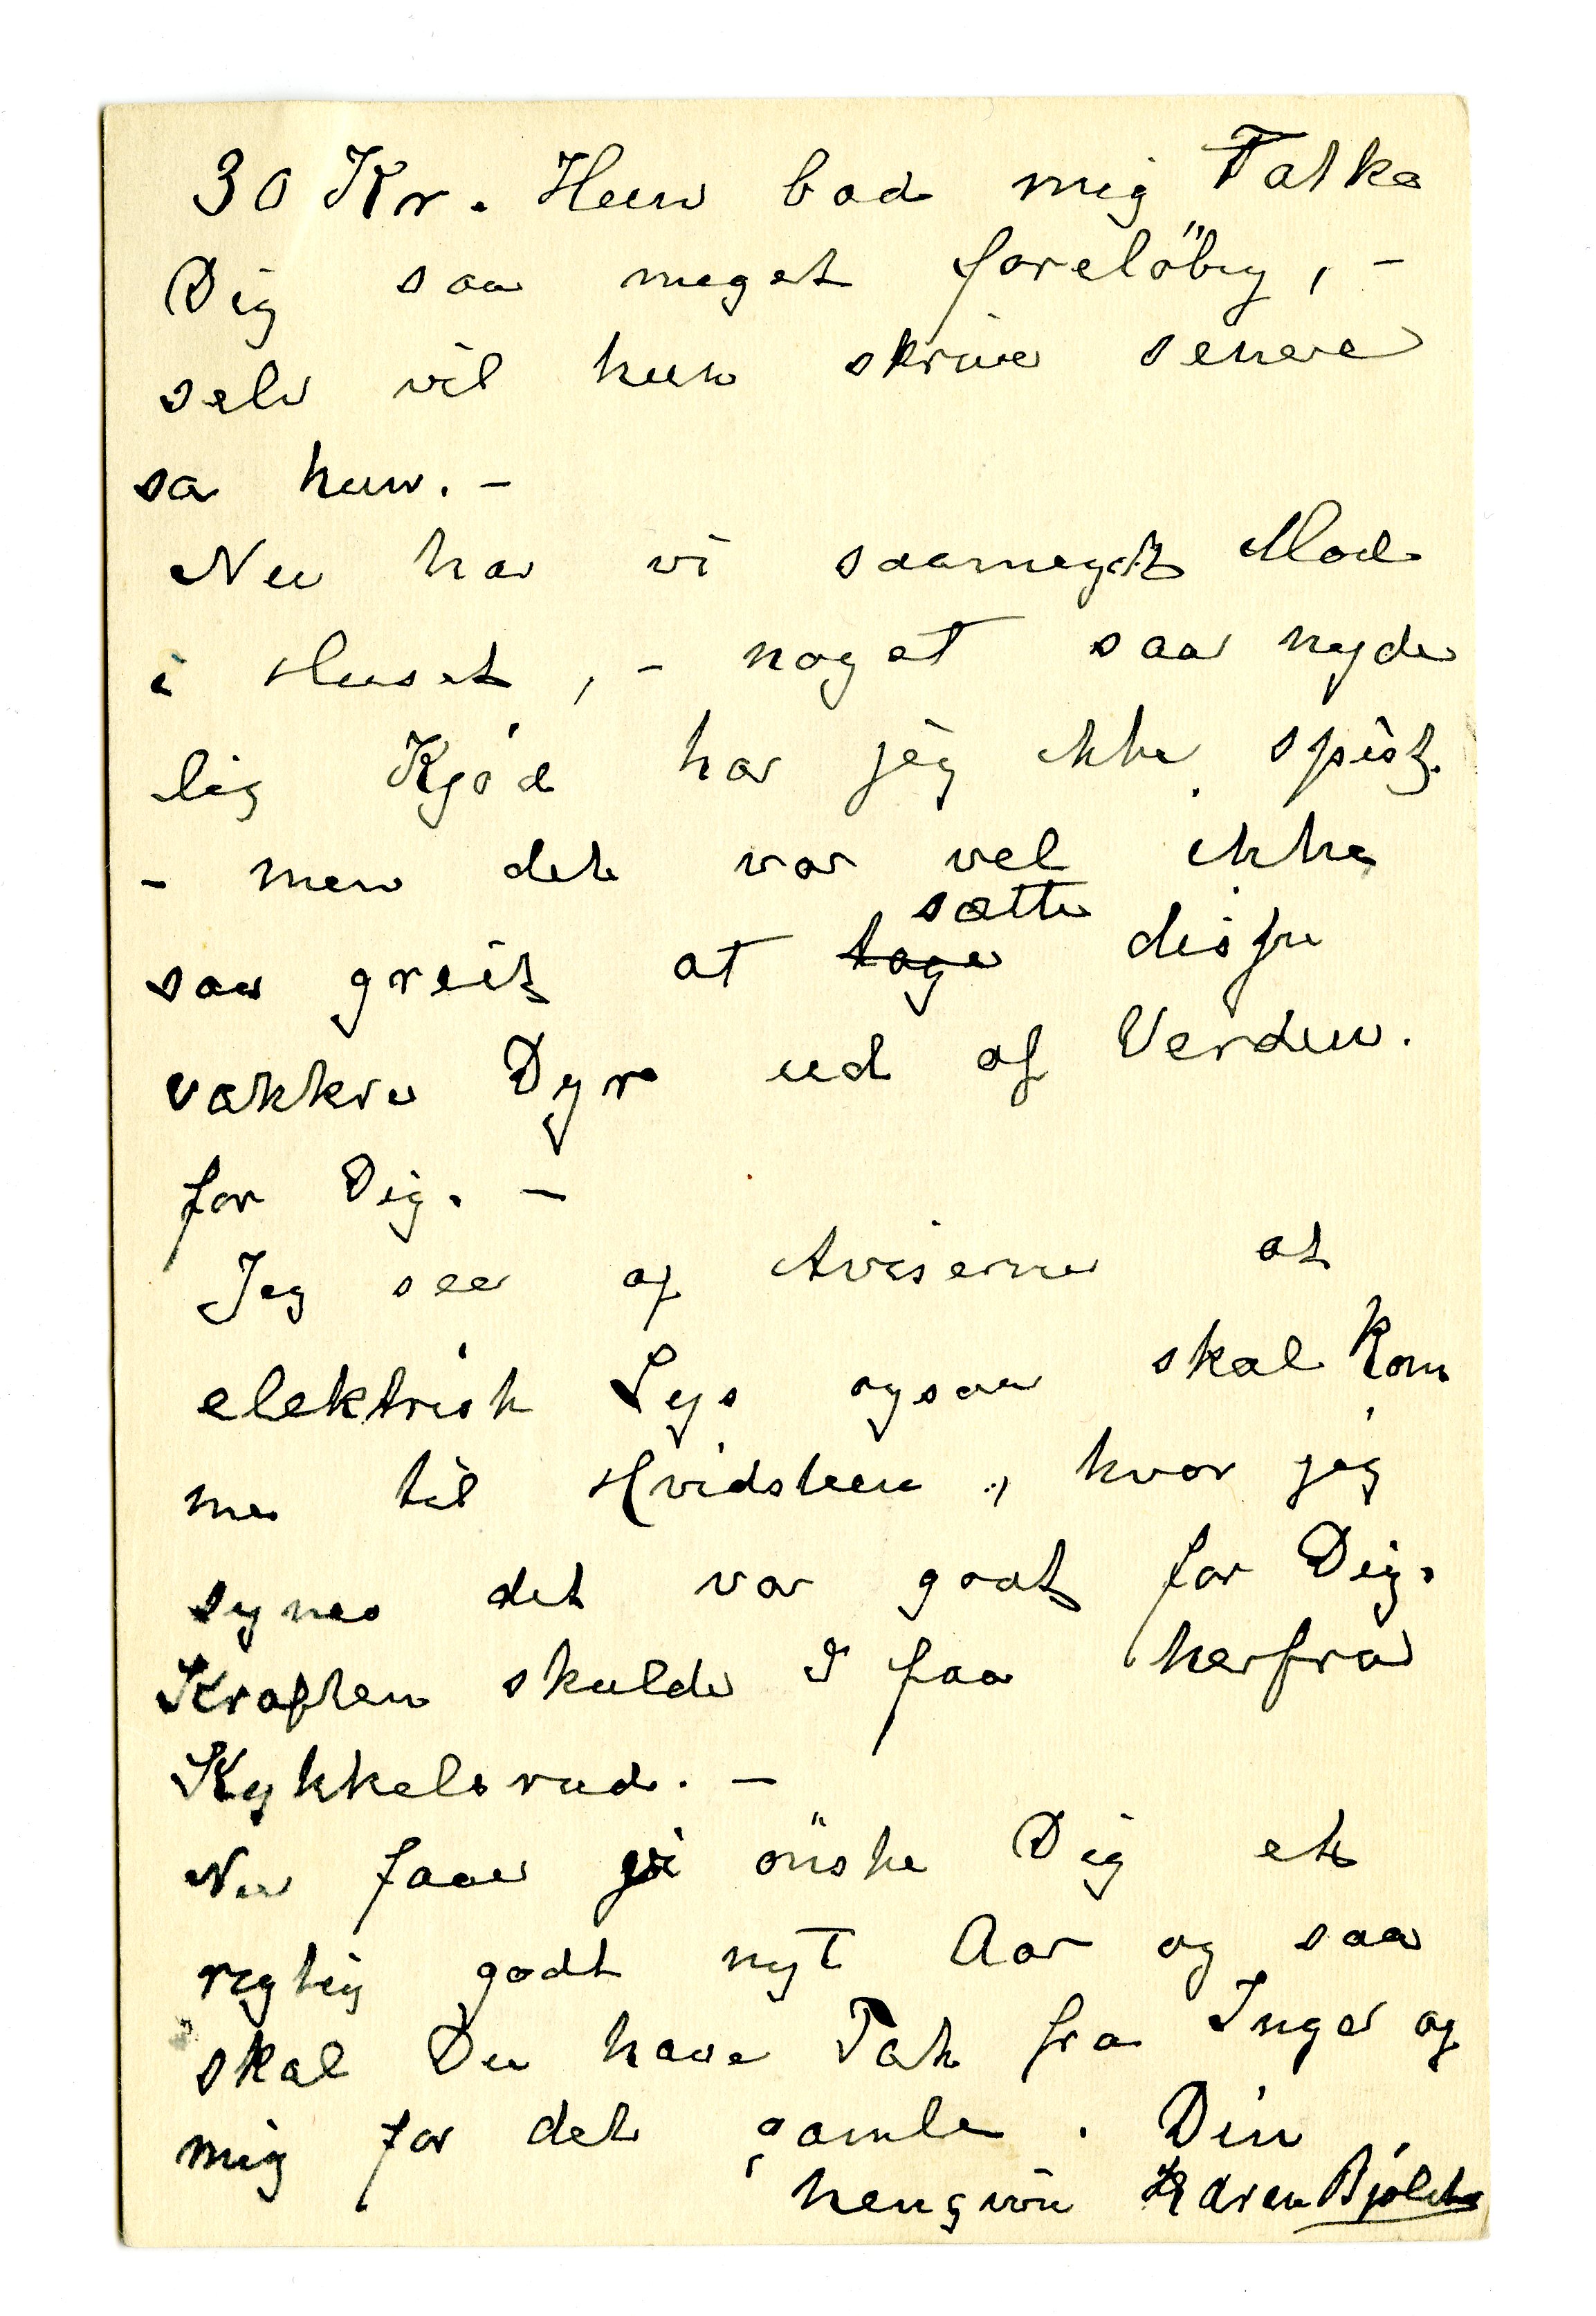 30 Kr. Hun bad mig Takke
Dig saa meget foreløbig, –
selv vil hun skrive senere
sa hun. –
Nu har vi saameget Mad
i Huset, – noget saa nyde
lig Kjød har jeg ikke spist.
– men det var vel ikke
sætte
saa greit at tage disse
vakkre Dyr ud af Verden.
for Dig. –
Jeg seer af Aviserne at
elektrisk Lys ogsaa skal kom
me til Hvidsteen, hvor jeg
synes det var godt for Dig.
Kraften skulde I faa herfra
Kykkelsrud. –
Nu faar vi ønske Dig et
rigtig godt nyt Aar og saa
skal Du have Tak fra Inger og
mig for det gamle. Din
hengivne Karen Bjølstad